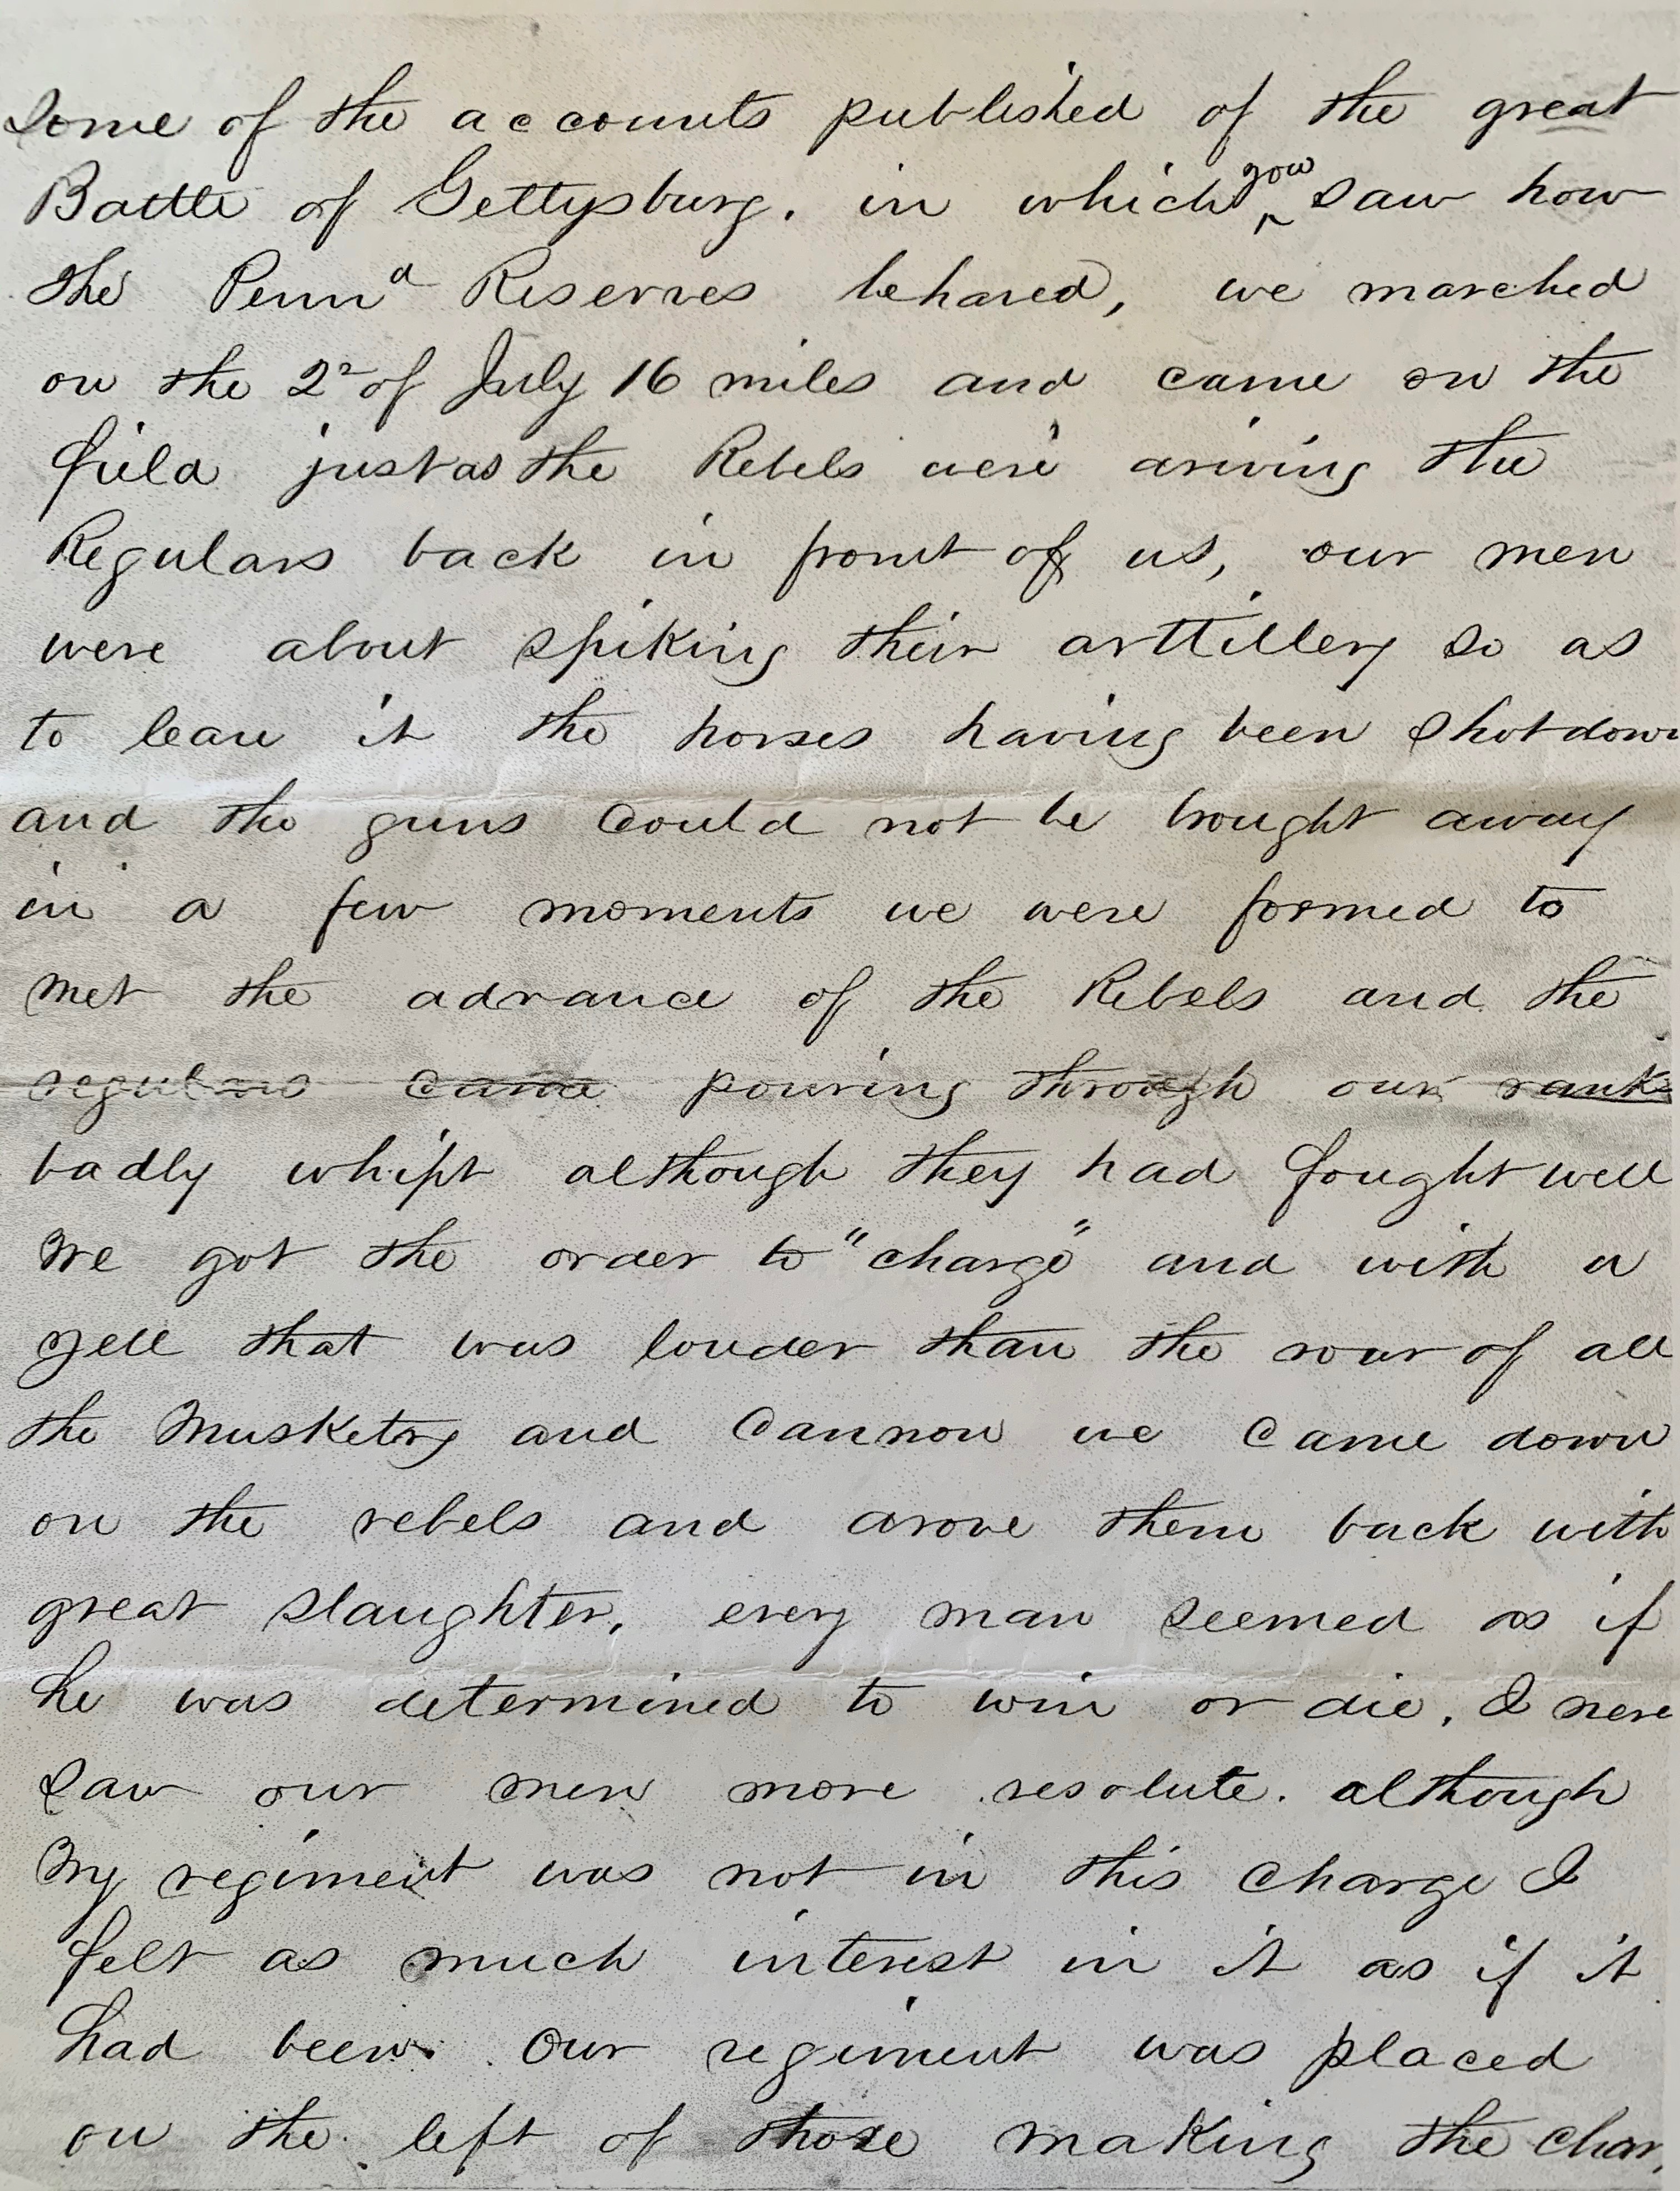 Some of the accounts published of the great
Battle of Gettysburg. in which you saw how
the Penna Reserves behaved, we marched
on the 2d of July 16 miles and came on the
field just as the Rebels were driving the
Regulars back in front of us, our men
were about spiking their arttillery so as
to leave it the horses having been shot down
and the guns could not be brought away
in a few moments we were formed to
met the advance of the Rebels and the
regulars came pouring through our rank
badly whipt although they had fought well
We got the order to "charge" and with a
yell that was louder than the roar of all
the Musketry and Cannon we came down
on the rebels and drove them back with
great slaughter, every man seemed as if
he was determined to win or die, I never
saw our men more resolute. although
My regiment was not in this charge I
felt as much interest in it as if it
had been. Our regiment was placed
on the left of those making the char,